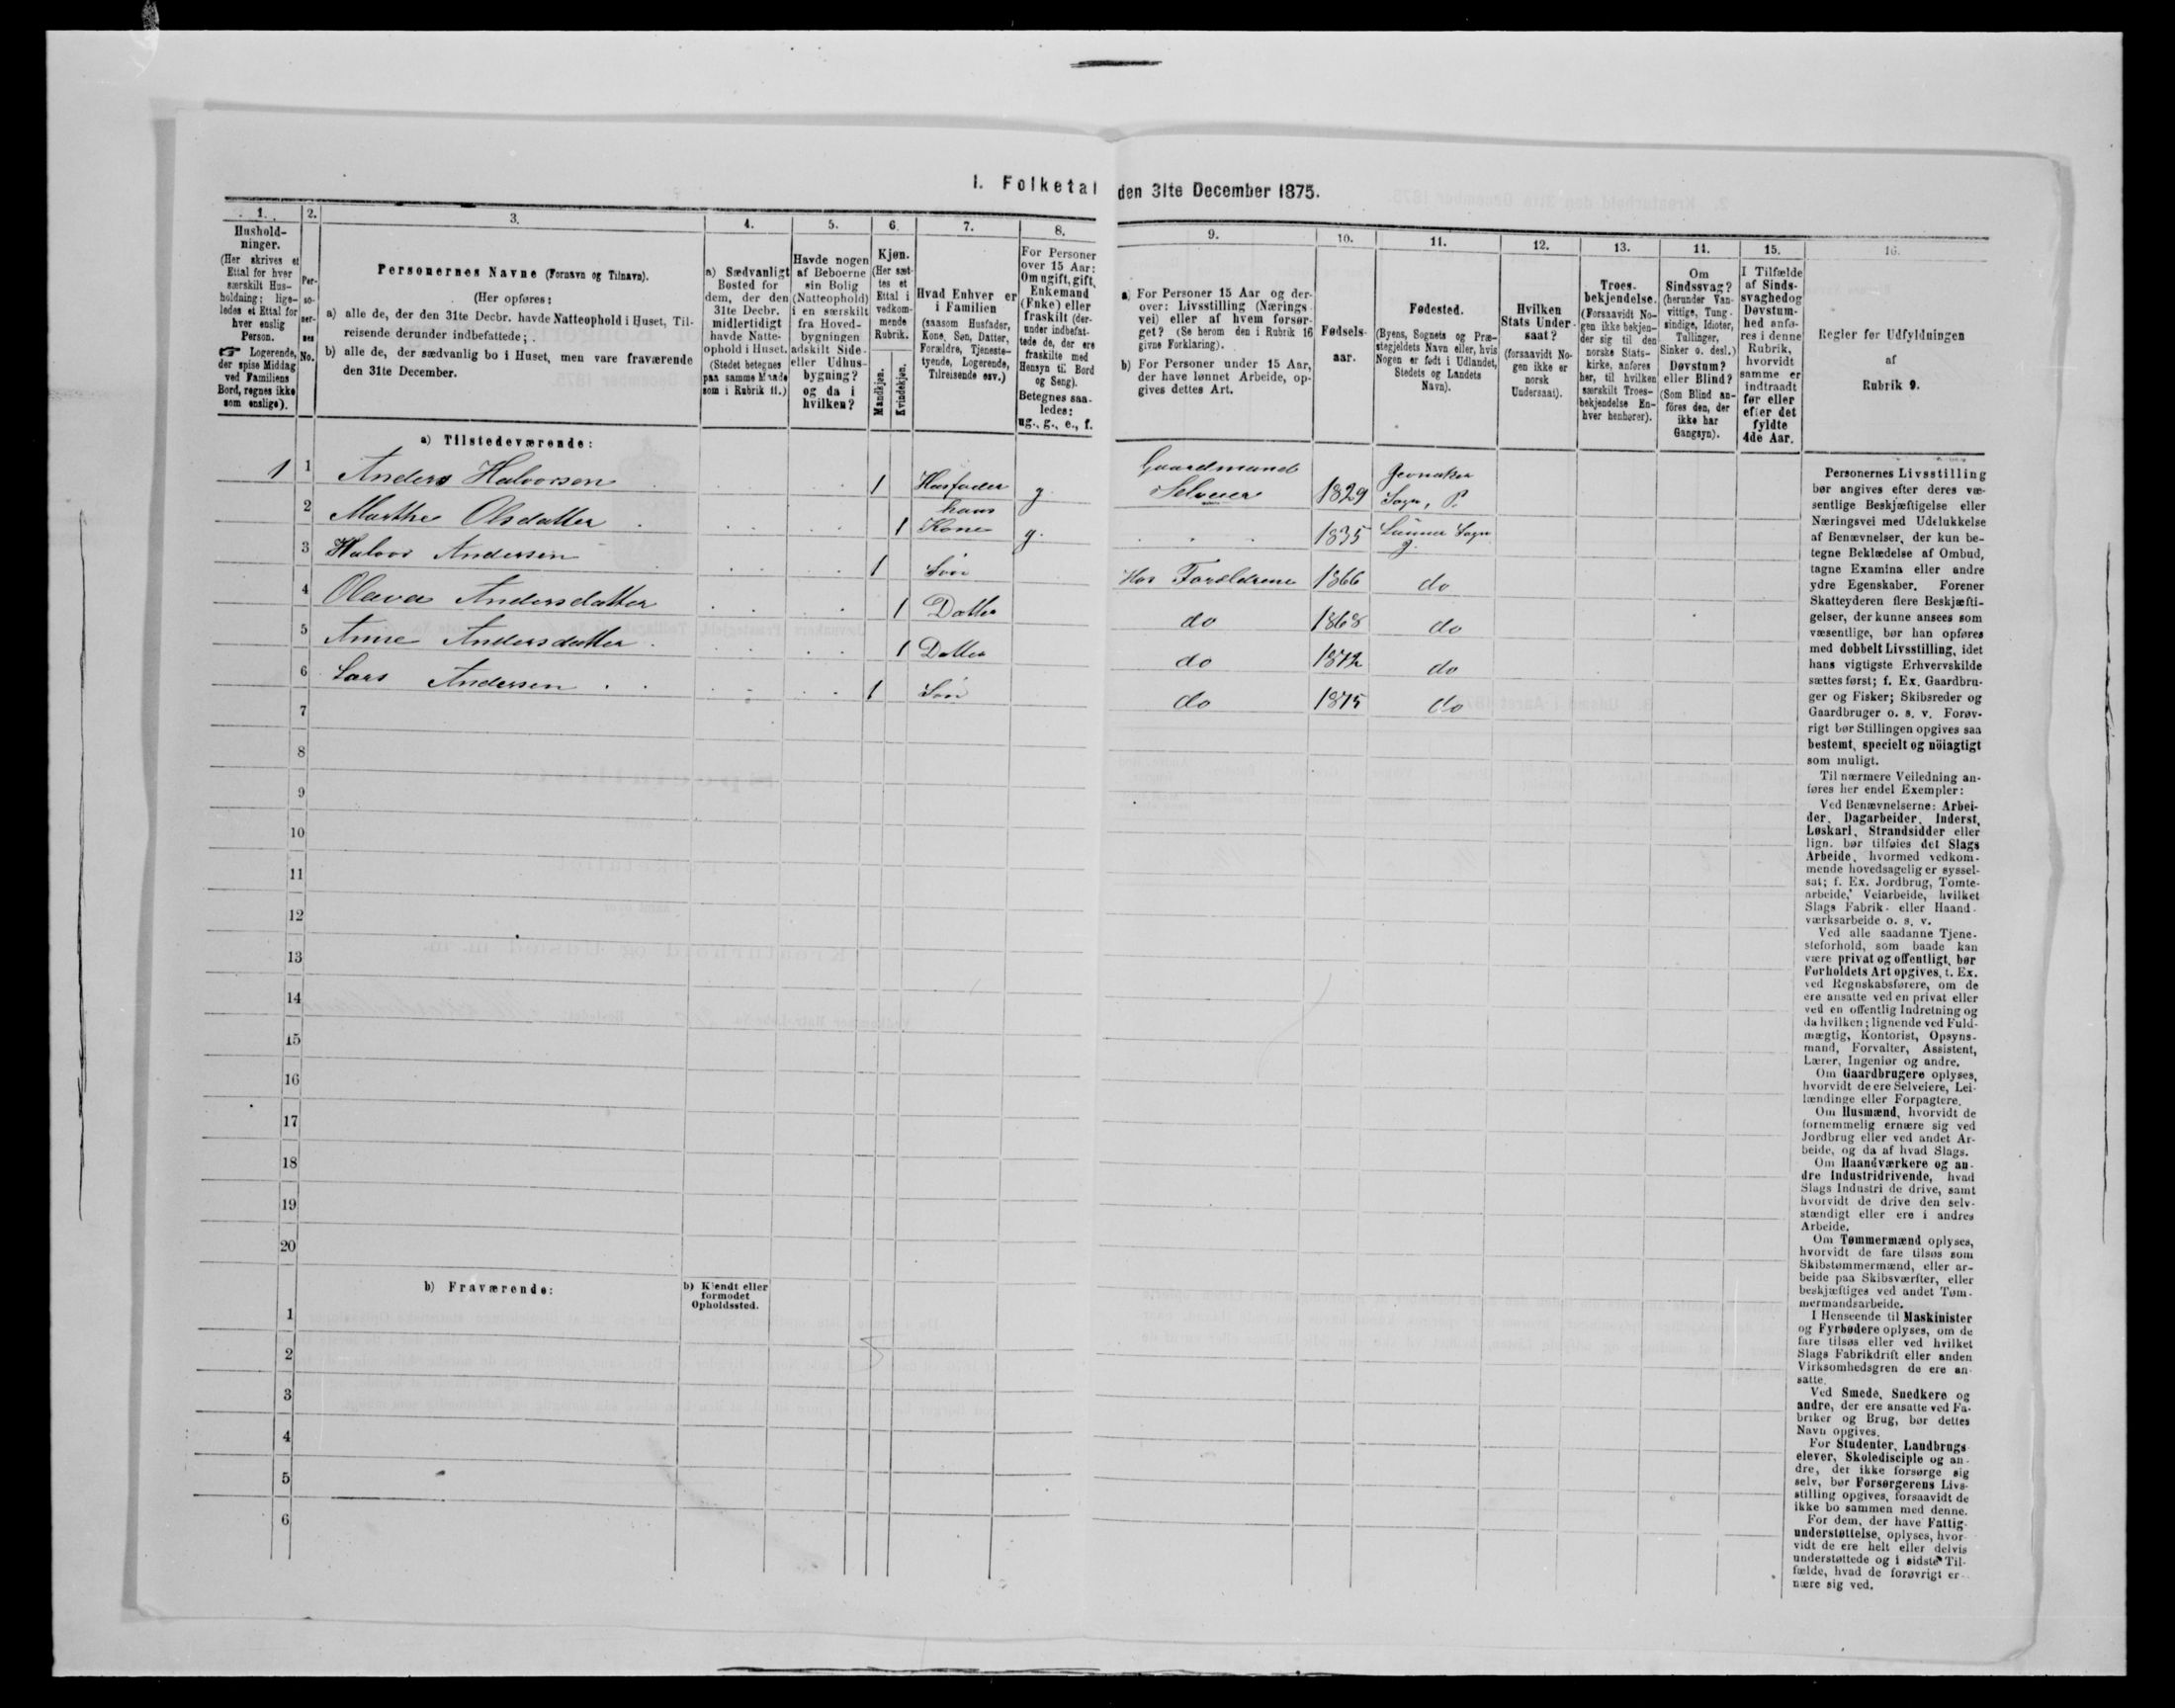 1. Folketal den 31te December 1875.
1.
Hushold-
ninger.
(Her skrives et
Ettal for hver
særskilt Hus-
holdning; lige-
ledes et Ettal for
hver enslig
Person.
☞ Logerende,
der spise Middag
ved Familiens
Bord, regnes ikke
som enslige).
2.
Per-
so-
ner-
nes
No.
3.
Personernes Navne (Fornavn og Tilnavn).
(Her opføres:
a) alle de, der den 31te Decbr. havde Natteophold i Huset, Til-
reisende derunder indbefattede;
b) alle de, der sædvanlig bo i Huset, men vare fraværende
den 31te December.
4.
a) Sædvanligt
Bosted for
dem, der den
31te Decbr.
midlertidigt
havde Natte-
ophold i Huset.
(Stedet betegnes
paa samme Maade
som i Rubrik 11.)
5.
Havde nogen
af Beboerne
sin Bolig
(Natteophold)
i en særskilt
fra Hoved-
bygningen
adskilt Side-
eller Udhus-
bygning?
og da i
hvilken?
6.
Kjøn.
(Her sæt-
tes et
Ettal i
vedkom-
mende
Rubrik.
Mandkjøn.
Kvindekjøn.
7.
Hvad Enhver er
i Familien
(saasom Husfader,
Kone, Søn, Datter,
Forældre, Tjeneste-
tyende, Logerende,
Tilreisende osv.)
8.
For Personer
over 15 Aar:
Om ugift, gift,
Enkemand
(Enke) eller
fraskilt (der-
under indbefat-
tede de, der ere
fraskilte med
Hensyn til Bord
og Seng).
Betegnes saa-
ledes:
ug., g., e., f.
9.
a) For Personer 15 Aar og der-
over: Livsstilling (Nærings-
vei) eller af hvem forsør-
get? (Se herom den i Rubrik 16
givne Forklaring).
b) For Personer under 15 Aar,
der have lønnet Arbeide, op-
gives dettes Art.
10.
Fødsels-
aar.
11.
Fødested.
(Byens, Sognets og Præ-
stegjeldets Navn eller, hvis
Nogen er født i Udlandet,
Stedets og Landets
Navn).
12.
Hvilken
Stats Under-
saat?
(forsaavidt No-
gen ikke er
norsk
Undersaat).
13.
Troes-
bekjendelse.
(Forsaavidt No-
gen ikke bekjen-
der sig til den
norske Stats-
kirke, anføres
her, til hvilken
særskilt Troes-
bekjendelse En-
hver henhører).
14.
Om
Sindssvag?
(herunder Van-
vittige, Tung-
sindige, Idioter,
Tullinger,
Sinker o. desl.)
Døvstum?
eller Blind?
(Som Blind an-
føres den, der
ikke har
Gangsyn).
15.
I Tilfælde
af Sinds-
svaghed og
Døvstum-
hed anfø-
res i denne
Rubrik,
hvorvidt
samme er
indtraadt
før eller
efter det
fyldte
4de Aar.
16.
Regler for Udfyldningen
af
Rubrik 9.
a) Tilstedeværende:
1 1 Anders Halvorsen 1 Husfader g. Gaardmand Selveier 1829 Jevnaker Sogn, P.
2 Marthe Olsdatter 1 hans Kone g. 1835 Lunner Sogn
3 Halvor Andersen 1 Søn Hos Forældrene 1866 do
4 Olava Andersdatter 1 Datter do 1868 do
5 Anne Andersdatter 1 Datter do 1872 do
6 Lars Andersen 1 Søn do 1875 do
7
8
9
10
11
12
13
14
15
16
17
18
19
20
b) Fraværende:
b) Kjendt eller
formodet
Opholdssted.
1
2
3
4
5
6
Personernes Livsstilling
bør angives efter deres væ-
sentlige Beskjæftigelse eller
Næringsvei med Udelukkelse
af Benævnelser, der kun be-
tegne Beklædelse af Ombud,
tagne Examina eller andre
ydre Egenskaber. Forener
Skatteyderen flere Beskjæfti-
gelser, der kunne ansees som
væsentlige, bør han opføres
med dobbelt Livsstilling, idet
hans vigtigste Erhvervskilde
sættes først; f. Ex. Gaardbru-
ger og Fisker; Skibsreder og
Gaardbruger o. s. v. Forøv-
rigt bør Stillingen opgives saa
bestemt, specielt og nöiagtigt
som muligt.
Til nærmere Veiledning an-
føres her endel Exempler:
Ved Benævnelserne: Arbei-
der, Dagarbeider, Inderst,
Løskarl, Strandsidder eller
lign. bør tilføies det Slags
Arbeide, hvormed vedkom-
mende hovedsagelig er syssel-
sat; f. Ex. Jordbrug, Tomte-
arbeide, Veiarbeide, hvilket
Slags Fabrik- eller Haand-
værksarbeide o. s. v.
Ved alle saadanne Tjene-
steforhold, som baade kan
være privat og offentligt, bør
Forholdets Art opgives, t. Ex.
ved Regnskabsførere, om de
ere ansatte ved en privat eller
ved en offentlig Indretning og
da hvilken; lignende ved Fuld-
mægtig, Kontorist, Opsyns-
mand, Forvalter, Assistent,
Lærer, Ingeniør og andre.
Om Gaardbrugere oplyses,
hvorvidt de ere Selveiere, Lei-
lændinge eller Forpagtere.
Om Husmænd, hvorvidt de
fornemmelig ernære sig ved
Jordbrug eller ved andet Ar-
beide, og da af hvad Slags.
Om Haandværkere og an-
dre Industridrivende, hvad
Slags Industri de drive, samt
hvorvidt de drive den selv-
stændigt eller ere i andres
Arbeide.
Om Tømmermænd oplyses,
hvorvidt de fare tilsøs som
Skibstømmermænd, eller ar-
beide paa Skibsværfter, eller
beskjæftiges ved andet Tøm-
mermandsarbeide.
I Henseende til Maskinister
og Fyrbødere oplyses, om de
fare tilsøs eller ved hvilket
Slags Fabrikdrift eller anden
Virksomhedsgren de ere an-
satte.
Ved Smede, Snedkere og
andre, der ere ansatte ved Fa-
briker og Brug, bør dettes
Navn opgives.
For Studenter, Landbrugs-
elever, Skoledisciple og an-
dre, der ikke forsørge sig
selv, bør Forsørgerens Livs-
stilling opgives, forsaavidt de
ikke bo sammen med denne.
For dem, der have Fattig-
understøttelse, oplyses, hvor-
vidt de ere helt eller delvis
understøttede og i sidste Til-
fælde, hvad de forøvrigt er-
nære sig ved.